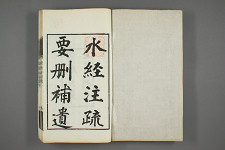 水経注疏
要刪補遺